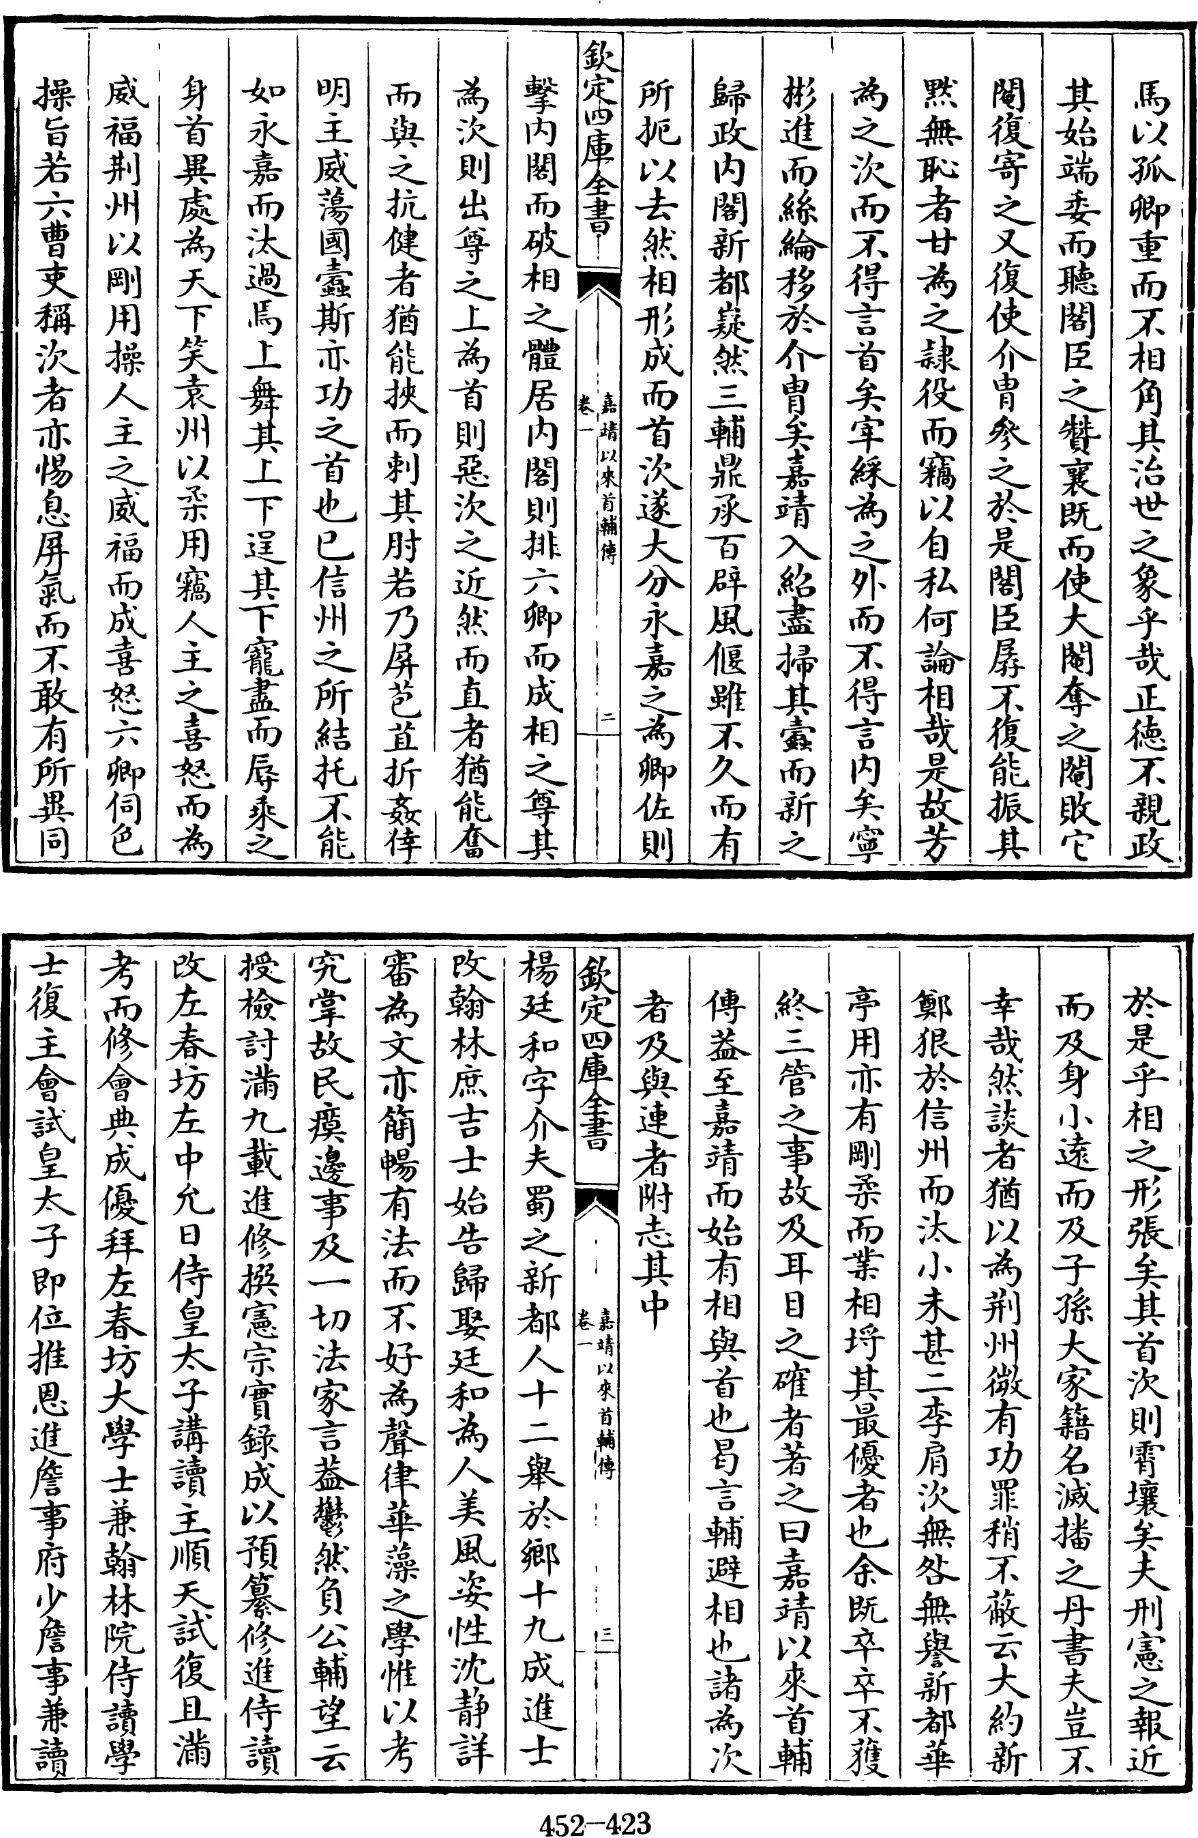 馬以孤卿重而不相角其治世之象乎哉正德不親政
其始端委而聽閣臣之贊襄既而使大閹奪之閹敗它
閹復寄之又復使介胄參之於是閣臣孱不復能振其
黙無恥者甘為之隷役而竊以自私何論相哉是故芳
為之次而不得言首矣宰綵為之外而不得言内矣寧
彬進而絲綸移於介胄矣嘉靖入紹盡掃其蠧而新之
歸政内閣新都嶷然三輔鼎承百辟風偃雖不久而有
所扼以去然相形成而首次遂大分永嘉之為卿佐則
欽定四庫全書
嘉靖以來首輔傳
卷一
二
擊内閣而破相之體居内閣則排六卿而成相之尊其
為次則出尊之上為首則惡次之近然而直者猶能奮
而與之抗健者猶能挾而刺其肘若乃屏苞苴折姦倖
明主威蕩國蠧斯亦功之首也已信州之所結托不能
如永嘉而汰過焉上舞其上下逞其下寵盡而辱乘之
身首異處為天下笑袁州以柔用竊人主之喜怒而為
威福荆州以剛用操人主之威福而成喜怒六卿伺色
操旨若六曹吏稱次者亦惕息屏氣而不敢有所異同
於是乎相之形張矣其首次則霄壤矣夫刑憲之報近
而及身小逺而及子孫大家籍名滅播之丹書夫豈不
幸哉然談者猶以為荆州微有功罪稍不蔽云大約新
鄭狠於信州而汰小未甚二李肩次無咎無譽新都華
亭用亦有剛柔而業相埒其最優者也余既卒卒不獲
終三管之事故及耳目之確者著之曰嘉靖以來首輔
傳葢至嘉靖而始有相與首也曷言輔避相也諸為次
者及與連者附志其中
欽定四庫全書
嘉靖以來首輔傳
卷一
三
楊廷和字介夫蜀之新都人十二舉於鄉十九成進士
改翰林庶吉士始告歸娶廷和為人美風姿性沈静詳
審為文亦簡暢有法而不好為聲律華藻之學惟以考
究掌故民瘼邊事及一切法家言葢鬱然負公輔望云
授檢討滿九載進修撰憲宗實録成以預纂修進侍讀
改左春坊左中允日侍皇太子講讀主順天試復且滿
考而修會典成優拜左春坊大學士兼翰林院侍讀學
士復主會試皇太子即位推恩進詹事府少詹事兼讀
452-423